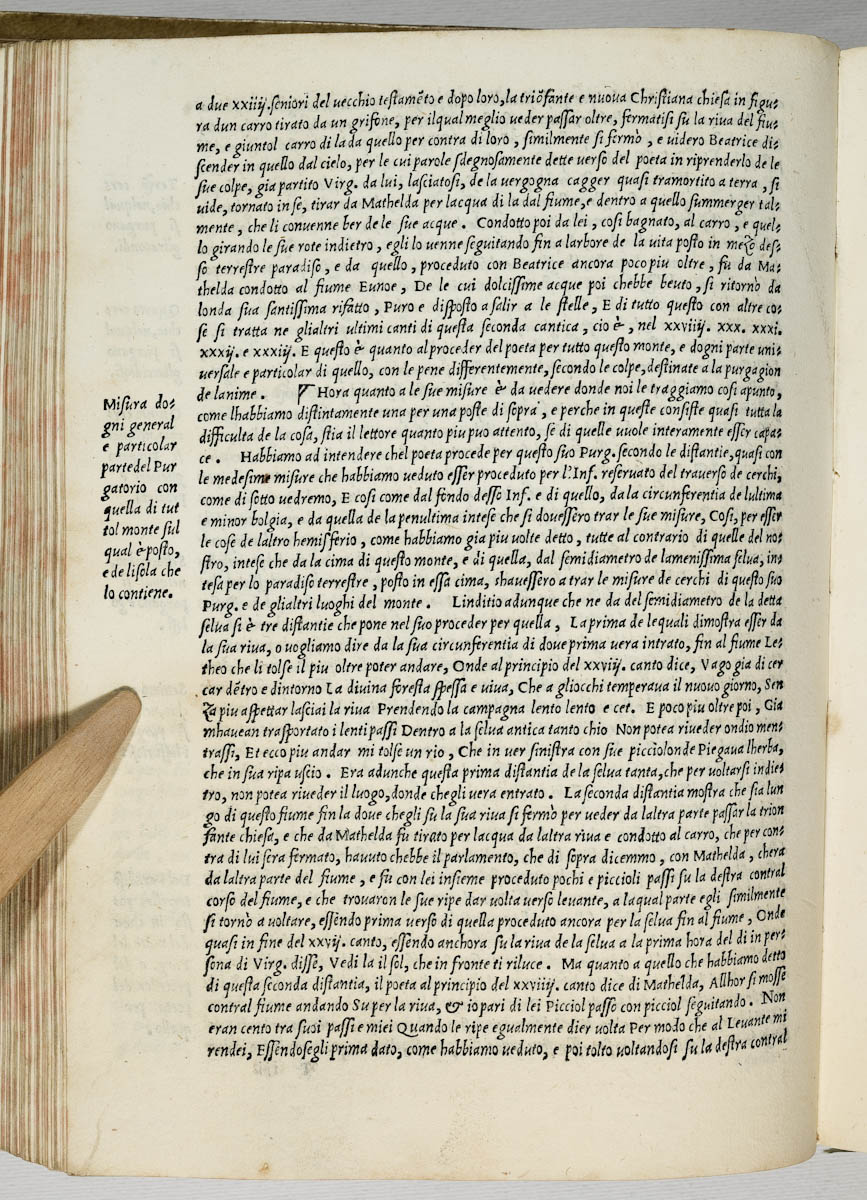 a due xxiiij. seniori del uecchio testamẽto e dopo loro, la triõfante e nuoua Christiana chiesa in figu-
ra dun carro tirato da un grifone, per ilqual meglio ueder passar oltre, fermatisi su la riua del fiu-
me, e giuntol carro di la da quello per contra di loro, similmente si fermò, e uidero Beatrice di-
scender in quello dal cielo, per le cui parole sdegnosamente dette verso del poeta in riprenderlo de le
sue colpe, gia partito Virg. da lui, lasciatosi, de la vergogna cagger quasi tramortito a terra, si
uide, tornato in se, tirar da Mathelda per lacqua di la dal fiume, e dentro a quello summerger tal-
mente, che li conuenne ber de le sue acque. Condotto poi da lei, cosi bagnato, al carro, e quel-
lo girando le sue rote indietro, egli lo uenne seguitando fin a larbore de la uita posto in mezo des-
so terrestre paradiso, e da quello, proceduto con Beatrice ancora poco piu oltre, fu da Ma-
thelda condotto al fiume Eunoe, De le cui dolcissime acque poi chebbe beuto, si ritornò da
londa sua santissima rifatto, Puro e disposto a salir a le stelle, E di tutto questo con altre co-
se si tratta ne glialtri ultimi canti di questa seconda cantica, cio è, nel xxviiij. xxx. xxxi.
xxxij. e xxxiij. E questo è quanto al proceder del poeta per tutto questo monte, e dogni parte uni-
uersale e particolar di quello, con le pene differentemente, secondo le colpe, destinate a la purgagion
de lanime. Hora quanto a le sue misure è da vedere donde noi le traggiamo cosi apunto,
come lhabbiamo distintamente una per una poste di sopra, e perche in queste consiste quasi tutta la
difficulta de la cosa, stia il lettore quanto piu puo attento, se di quelle uuole interamente esser capa-
ce. Habbiamo ad intendere chel poeta procede per questo suo Purg. secondo le distantie, quasi con
le medesime misure che habbiamo ueduto esser proceduto per l'Inf. reseruato del trauerso de cerchi,
come di sotto uedremo, E cosi come dal fondo desso Inf. e di quello, da la circunferentia de lultima
e minor bolgia, e da quella de la penultima intese che si douessero trar le sue misure, Cosi, per esser
le cose de laltro hemisferio, come habbiamo gia piu volte detto, tutte al contrario di quelle del no-
stro, intese che da la cima di questo monte, e di quella, dal semidiametro de lamenissima selua, in-
tesa per lo paradiso terrestre, posto in essa cima, shauessero a trar le misure de cerchi di questo suo
Purg. e de glialtri luoghi del monte. Linditio adunque che ne da del semidiametro de la detta
selua si è tre distantie che pone nel suo proceder per quella, La prima de lequali dimostra esser da
la sua riua, o uogliamo dire da la sua circunferentia di doue prima vera intrato, fin al fiume Le-
theo che li tolse il piu oltre poter andare, Onde al principio del xxviij. canto dice, Vago gia di cer-
car dẽtro e dintorno La diuina foresta spessa e uiua, Che a gliocchi temperaua il nuouo giorno, Sen
za piu aspettar lasciai la riua Prendendo la campagna lento lento e cet. E poco piu oltre poi, Gia
mhauean trasportato i lenti passi Dentro a la selua antica tanto chio Non potea riueder ondio men-
trassi, Et ecco piu andar mi tolse un rio, Che in ver sinistra con sue picciolonde Piegaua lherba,
che in sua ripa uscio. Era adunche questa prima distantia de la selua tanta, che per voltarsi indie-
tro, non potea riueder il luogo, donde chegli vera entrato. La seconda distantia mostra che sia lun
go di questo fiume fin la doue chegli su la sua riua si fermò per ueder da laltra parte passar la trion
fante chiesa, e che da Mathelda fu tirato per lacqua da laltra riua e condotto al carro, che per con-
tra di lui sera fermato, hauuto chebbe il parlamento, che di sopra dicemmo, con Mathelda, chera
da laltra parte del fiume, e fu con lei insieme proceduto pochi e piccioli passi su la destra contral
corso del fiume, e che trouaron le sue ripe dar volta verso leuante, a laqual parte egli similmente
si tornò a voltare, essendo prima verso di quella proceduto ancora per la selua fin al fiume, Onde
quasi in fine del xxvij. canto, essendo anchora su la riua de la selua a la prima hora del di in per-
sona di Virg. disse, Vedi la il sol, che in fronte ti riluce. Ma quanto a quello che habbiamo detto
di questa seconda distantia, il poeta al principio del xxviiij. canto dice di Mathelda, Allhor si mosse
contral fiume andando Su per la riua, & io pari di lei Picciol passo con picciol seguitando. Non
eran cento tra suoi passi e miei Quando le ripe egualmente dier volta Per modo che al Leuante mi
rendei, Essendosegli prima dato, come habbiamo ueduto, e poi tolto uoltandosi su la destra contral
Misura do-
gni general
e particolar
parte del Pur
gatorio con
quella di tut
tol monte sul
qual è posto,
e de lisola che
lo contiene.